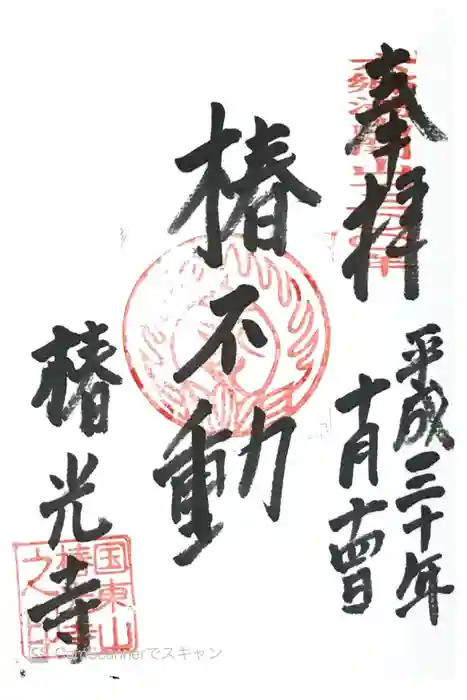 奉拝
平成三十年
十月十四日
椿不動
椿光寺
国東山
椿光寺
之印
CS CamScannerでスキャン